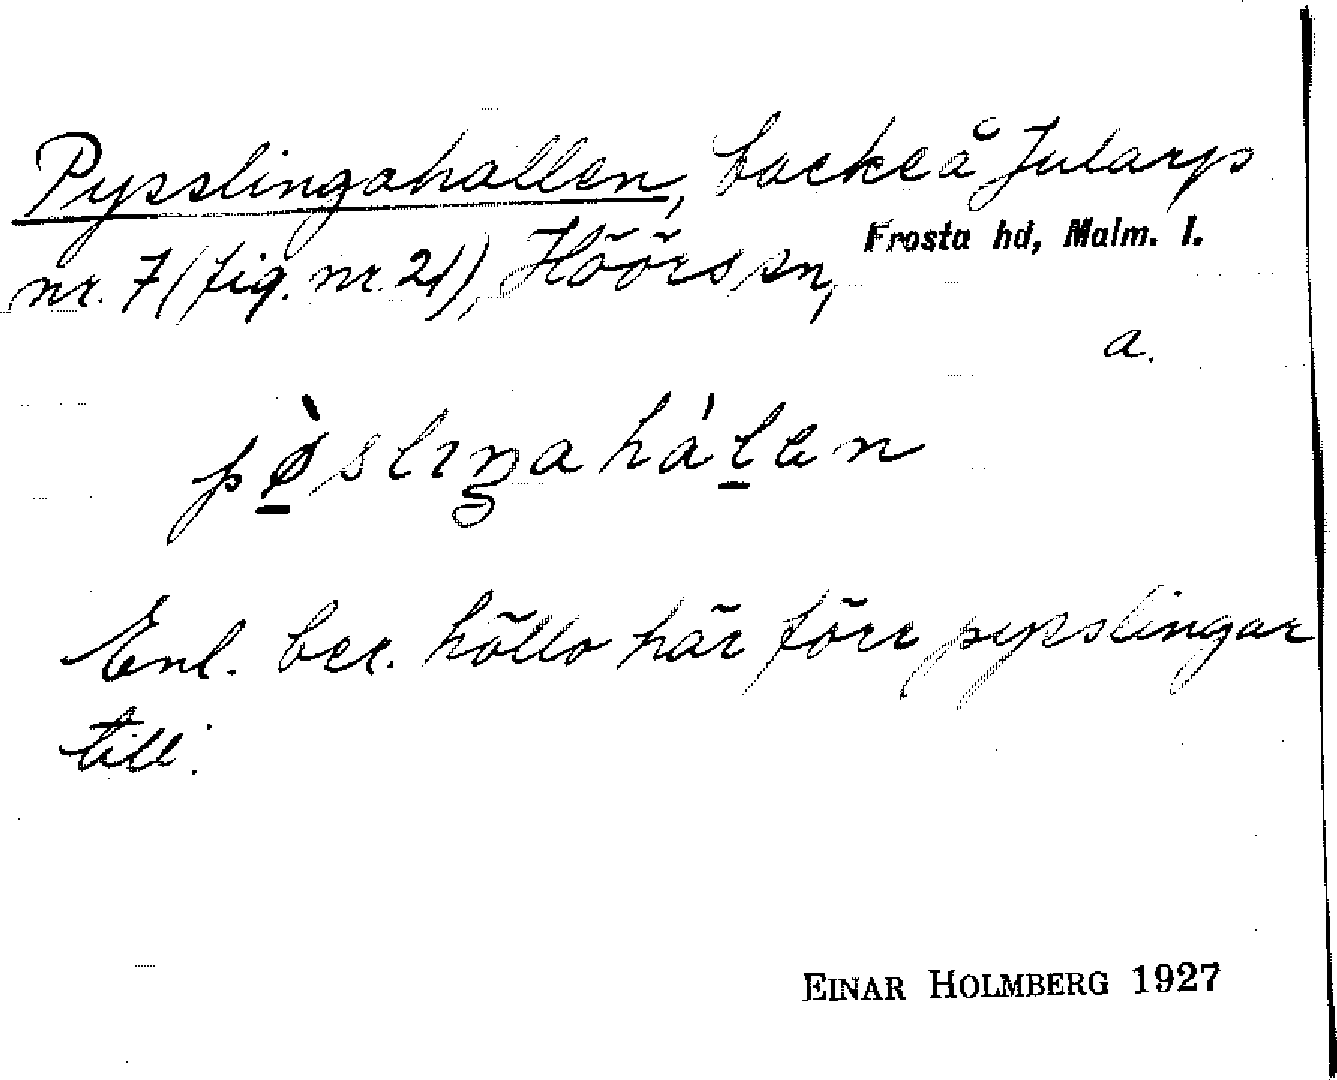 Pysslingahallen, backe å Jularp
nr. 7 (fig. nr 21), Höörs sn, Frosta hd, Malm. l.
a.
pø̀slıŋahálen
Enl. ber. höllo här förr pysslingar
till.
EINAR HOLMBERG 1927